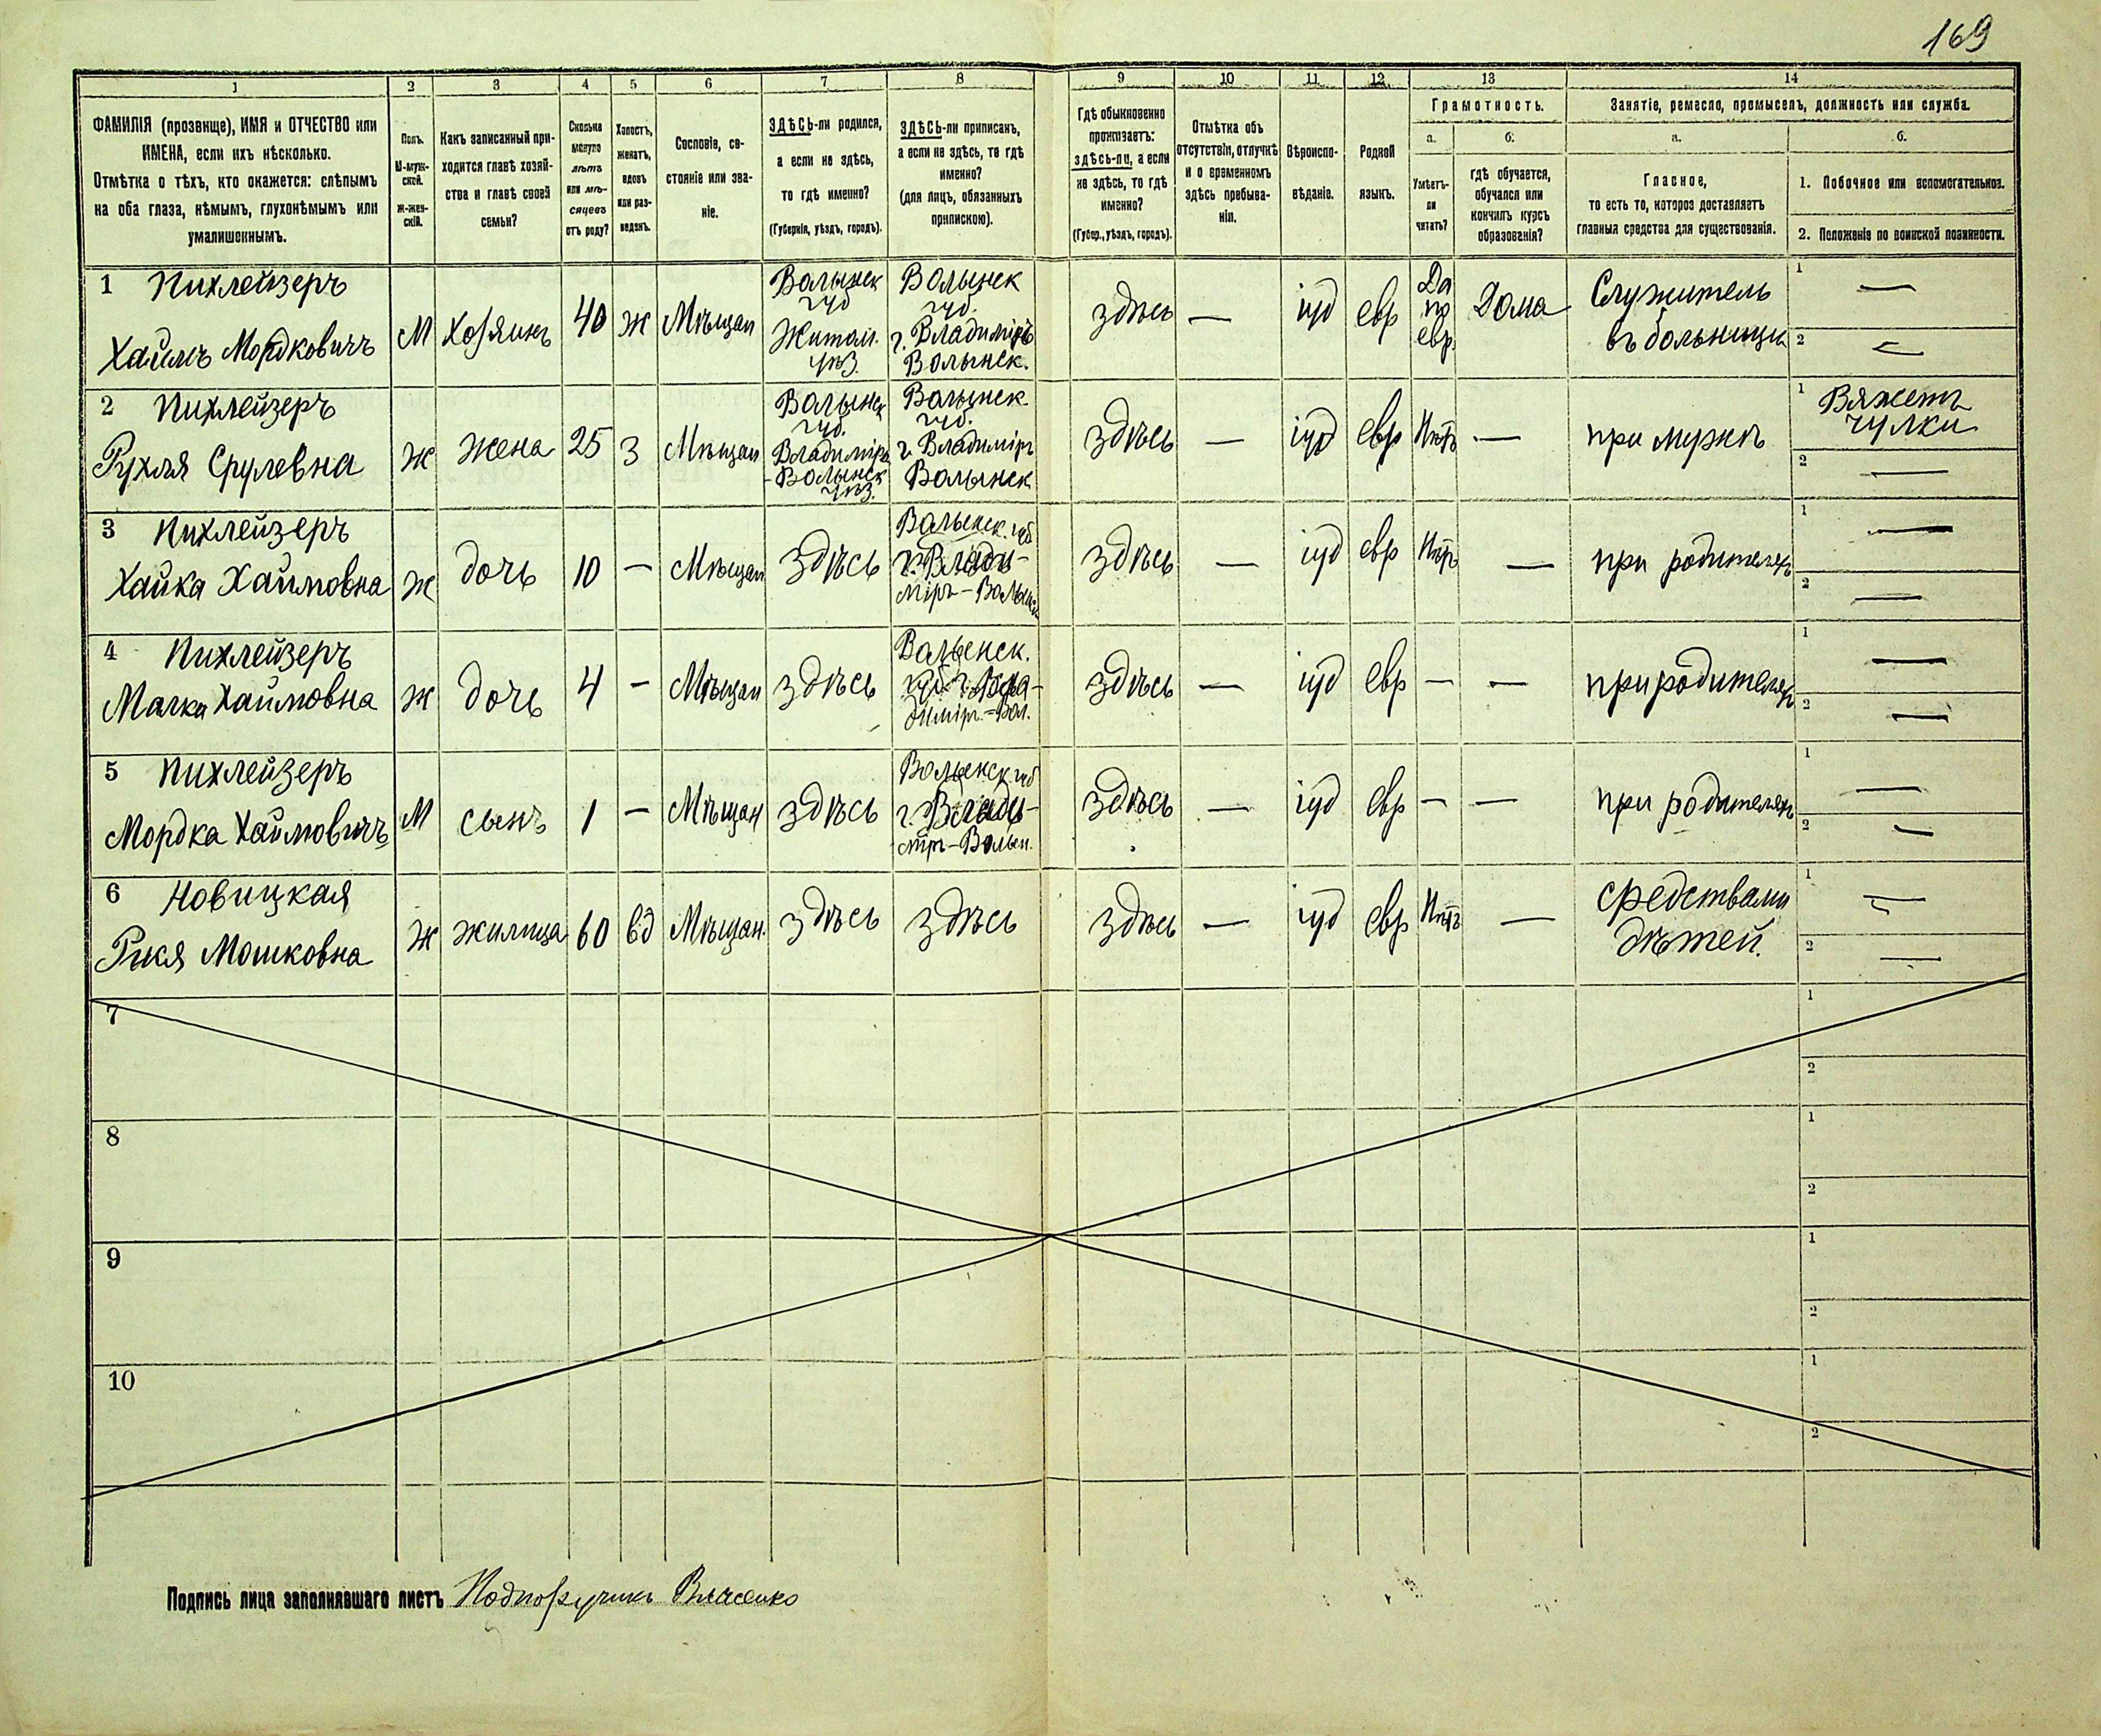 169
1 2 3 4 5 6 7 8 9 10 11 12 13 14
ФАМИЛІЯ (прозвище), ИМЯ и ОТЧЕСТВО или
ИМЕНА, если ихъ нѣсколько.
Отмѣтка о тѣхъ, кто окажется: слѣпымъ
на оба глаза, нѣмымъ, глухонѣмымъ или
умалишеннымъ.
Полъ.
М-муж-
ской.
Ж-жен-
скій.
Какъ записанный при-
ходится главѣ хозяй-
ства и главѣ своей
семьи?
Сколько
минуло
лѣтъ
или мѣ-
сяцевъ
отъ роду?
Холостъ,
женатъ,
вдовъ
или раз-
веденъ.
Сословіе, со-
стояніе или зва-
ніе.
ЗДѢСЬ-ли родился,
а если не здѣсь,
то гдѣ именно?
(Губернія, уѣздъ, городъ).
ЗДѢСЬ-ли приписанъ,
а если не здѣсь, то гдѣ
именно?
(для лицъ, обязанныхъ
припискою).
Гдѣ обыкновенно
проживаетъ:
здѣсь-ли, а если
не здѣсь, то гдѣ
именно?
(Губер., уѣздъ, городъ).
Отмѣтка объ
отсутствіи, отлучкѣ
и о временномъ
здѣсь пребыва-
ніи.
Вѣроиспо-
вѣданіе.
Родной
языкъ.
Грамотность.
а. б.
Умѣетъ-
ли
читать?
гдѣ обучается,
обучался или
кончилъ курсъ
образованія?
Занятіе, ремесло, промыселъ, должность или служба.
а. б.
Главное,
то есть то, которое доставляетъ
главныя средства для существованія.
1. Побочное или вспомогательное.
2. Положеніе по воинской повинности.
1 Пихлейзеръ
Хаимъ Мордковичъ
М
Хозяинъ
40
Ж
Мѣщан
Волынск
губ
Житом.
уѣз.
Волынск
губ.
г. Владиміръ
Волынск.
здѣсь
—
іуд
евр
Да
по
евр.
Дома
Служитель
въ больницѣ
1 —
2 —
2 Пихлейзеръ
Рухля Срулевна
Ж
жена
25
З
Мѣщан
Волынск
губ.
Владиміръ
-Волынск
уѣз.
Волынск.
губ.
г. Владиміръ
Волынск
здѣсь
—
іуд
евр
Нѣтъ
—
при мужѣ
1 Вяжетъ
чулки
2 —
3 Пихлейзеръ
Хайка Хаимовна
Ж
дочь
10
—
Мѣщан
здѣсь
Волынск. губ
г. Влади-
міръ-Волынск
здѣсь
—
іуд
евр
Нѣтъ
—
при родителяхъ
1 —
2 —
4 Пихлейзеръ
Малка Хаимовна
Ж
дочь
4
—
Мѣщан
здѣсь
Волынск.
губ. г. Вла-
диміръ-Вол.
здѣсь
—
іуд
евр
—
—
при родителяхъ
1 —
2 —
5 Пихлейзеръ
Мордка Хаимовичъ
М
сынъ
1
—
Мѣщан
здѣсь
Волынск губ
г. Влади-
міръ-Волын.
здѣсь
—
іуд
евр
—
—
при родителяхъ
1 —
2 —
6 Новицкая
Рикя Мошковна
Ж
жилица
60
вд
Мѣщан.
здѣсь
здѣсь
здѣсь
—
іуд
евр
Нѣтъ
—
средствами
дѣтей.
1 —
2 —
7
1
2
8
1
2
9
1
2
10
1
2
Подпись лица заполнявшаго листъ Подпоручикъ Власенко